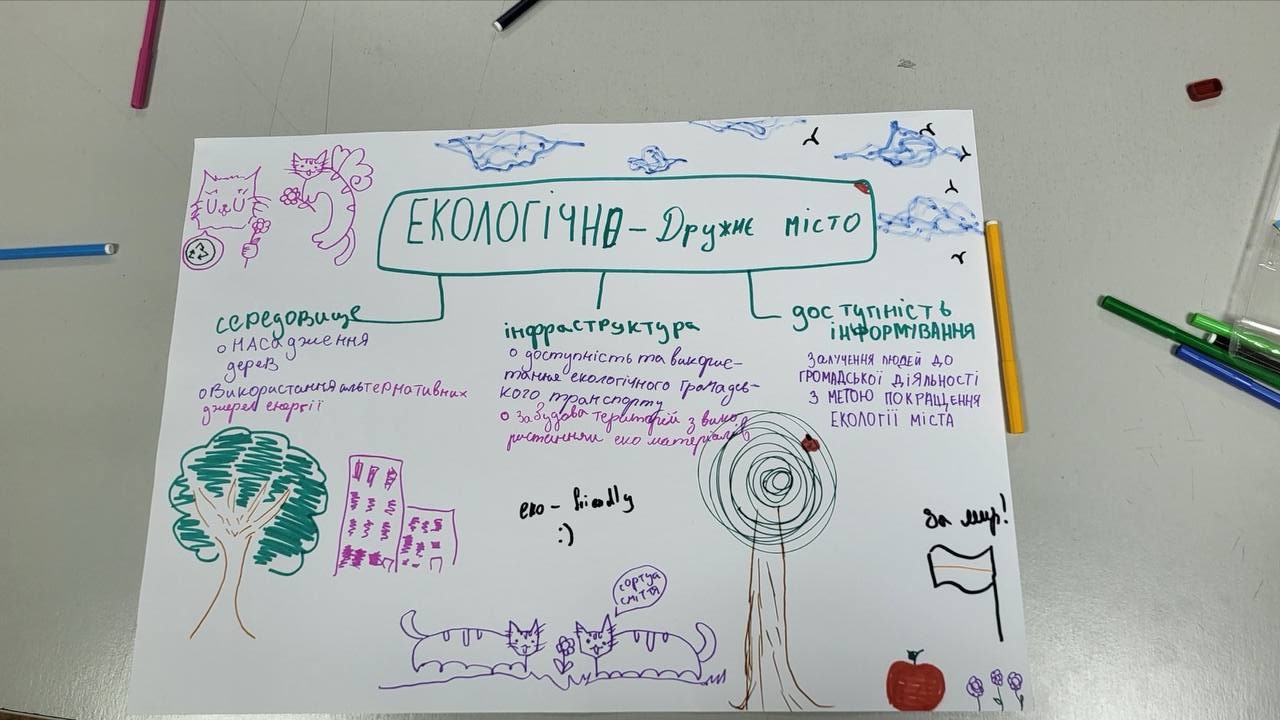 ЕКОЛОГІЧНО - Дружнє місто
середовище
о насадження
дерев
о Використання альтернативних
джерел енергії
інфраструктура
о доступність та викорис-
тання екологічного громадсь-
кого транспорту
о забудова територій з вико-
ристанням еко матеріалів
доступність
інформування
ЗАЛУЧЕННЯ ЛЮДЕЙ ДО
ГРОМАДСЬКОЇ ДІЯЛЬНОСТІ
З МЕТОЮ ПОКРАЩЕННЯ
ЕКОЛОГІЇ МІСТА
еко - friendly
:)
За мир!
сортуй
сміття